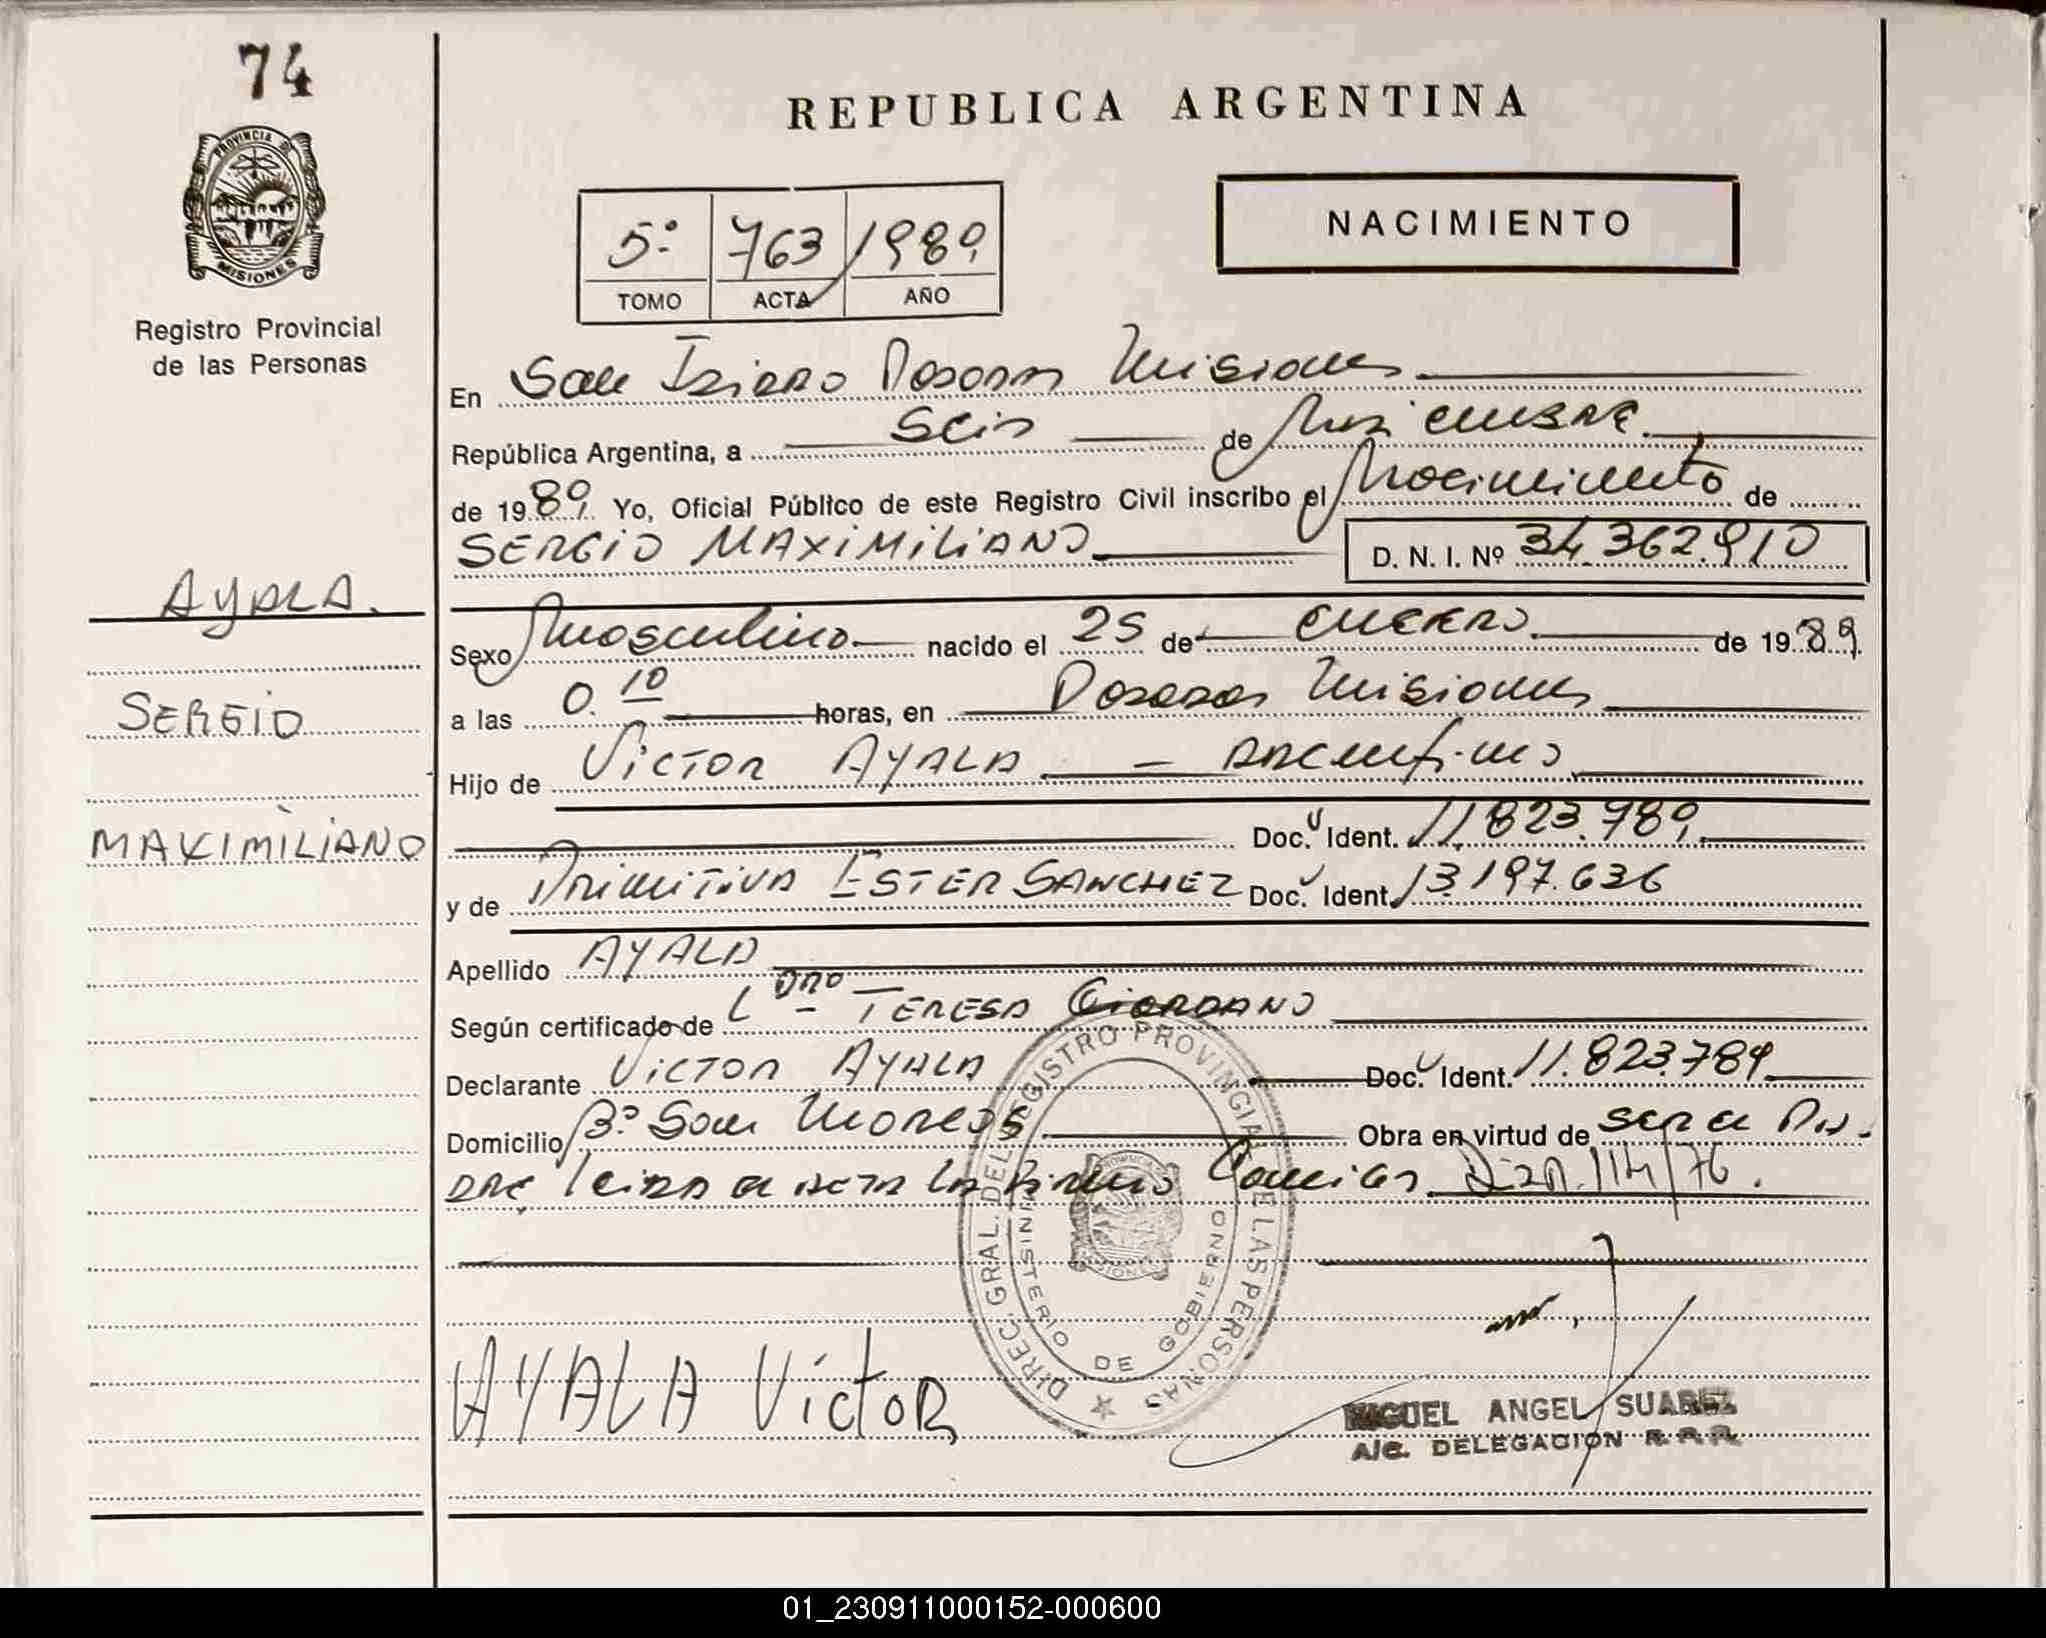 74
PROVINCIA DE
MISIONES
Registro Provincial
de las Personas
AYALA.
SERGIO
MAXIMILIANO
REPUBLICA ARGENTINA
5º 763 1989
TOMO ACTA AÑO
NACIMIENTO
En San Isidro Posadas Misiones
República Argentina, a Seis de Diciembre
de 1989 Yo, Oficial Público de este Registro Civil inscribo el Nacimiento de
SERGIO MAXIMILIANO D. N. I. Nº 34.362.910
Sexo Masculino nacido el 25 de enero de 1989
a las 0.10 horas, en Posadas Misiones
Hijo de Victor AYALA - argentino
Doc. Ident. 11.823.789
y de Primitiva ESTER SANCHEZ Doc. Ident. 13.197.636
Apellido AYALA
Según certificado de TERESA GIORDANO
Declarante Victor AYALA Doc. Ident. 11.823.789
Domicilio Bº San Obra en virtud de ser el Pa-
dre leida el acta la firma 114/76.
DIREC. GRAL. DEL REGISTRO PROVINCIAL DE LAS PERSONAS
MINISTERIO DE GOBIERNO
AYALA Victor
MIGUEL ANGEL SUAREZ
A/C. DELEGACION R. P. P.
01_230911000152-000600